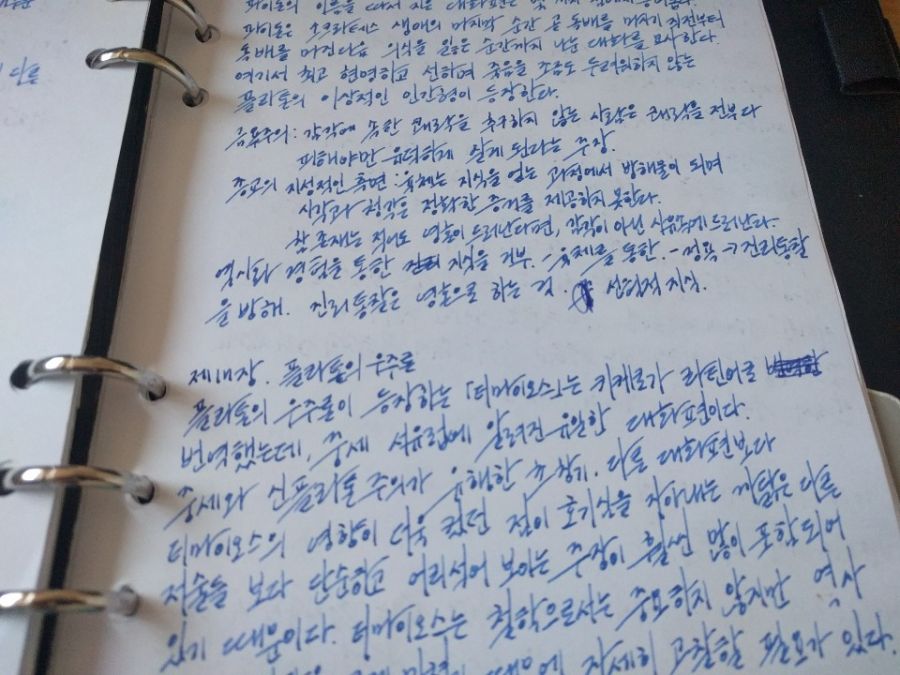 파이돈의 이름을 따서 지은 대화편은
파이돈은 소크라테스 생애의 마지막 순간 곧 독배를 마시기 직전부터
독배를 마신다음 의식을 잃은 순간까지 나눈 대화를 묘사한다.
여기서 최고 현명하고 선하며 죽음을 조금도 두려워하지 않는
플라톤의 이상적인 인간형이 등장한다.
금욕주의: 감각에 속한 쾌락을 추구하지 않는 사람은 쾌락을 전부다
피해야만 유덕하게 살게 된다는 주장.
종교의 지성적인 측면: 육체는 지식을 얻는 과정에서 방해물이 되며
시각과 청각은 정확한 증거를 제공하지 못한다.
참 존재는 적어도 영혼이 드러난다면, 감각이 아닌 사유속에 드러난다.
역사와 경험을 통한 지식을 거부. - 육체를 통한. - 정욕 → 진리통찰
을 방해. 진리통찰은 영혼으로 하는 것. 선험적 지식.
제18장. 플라톤의 우주론
플라톤의 우주론이 등장하는 「티마이오스」는 키케로가 라틴어로
번역했는데, 중세 서유럽에 알려진 유일한 대화편이다.
중세와 신플라톤주의가 유행한 초창기. 다른 대화편보다
티마이오스의 영향이 더욱 컸던 점이 호기심을 자아내는 까닭은 다른
저술들 보다 단순하고 어리석어 보이는 주장이 훨씬 많이 포함되어
있기 때문이다. 티마이오스는 철학으로서는 중요하지 않지만 역사
때문에 자세히 고찰할 필요가 있다.
다른